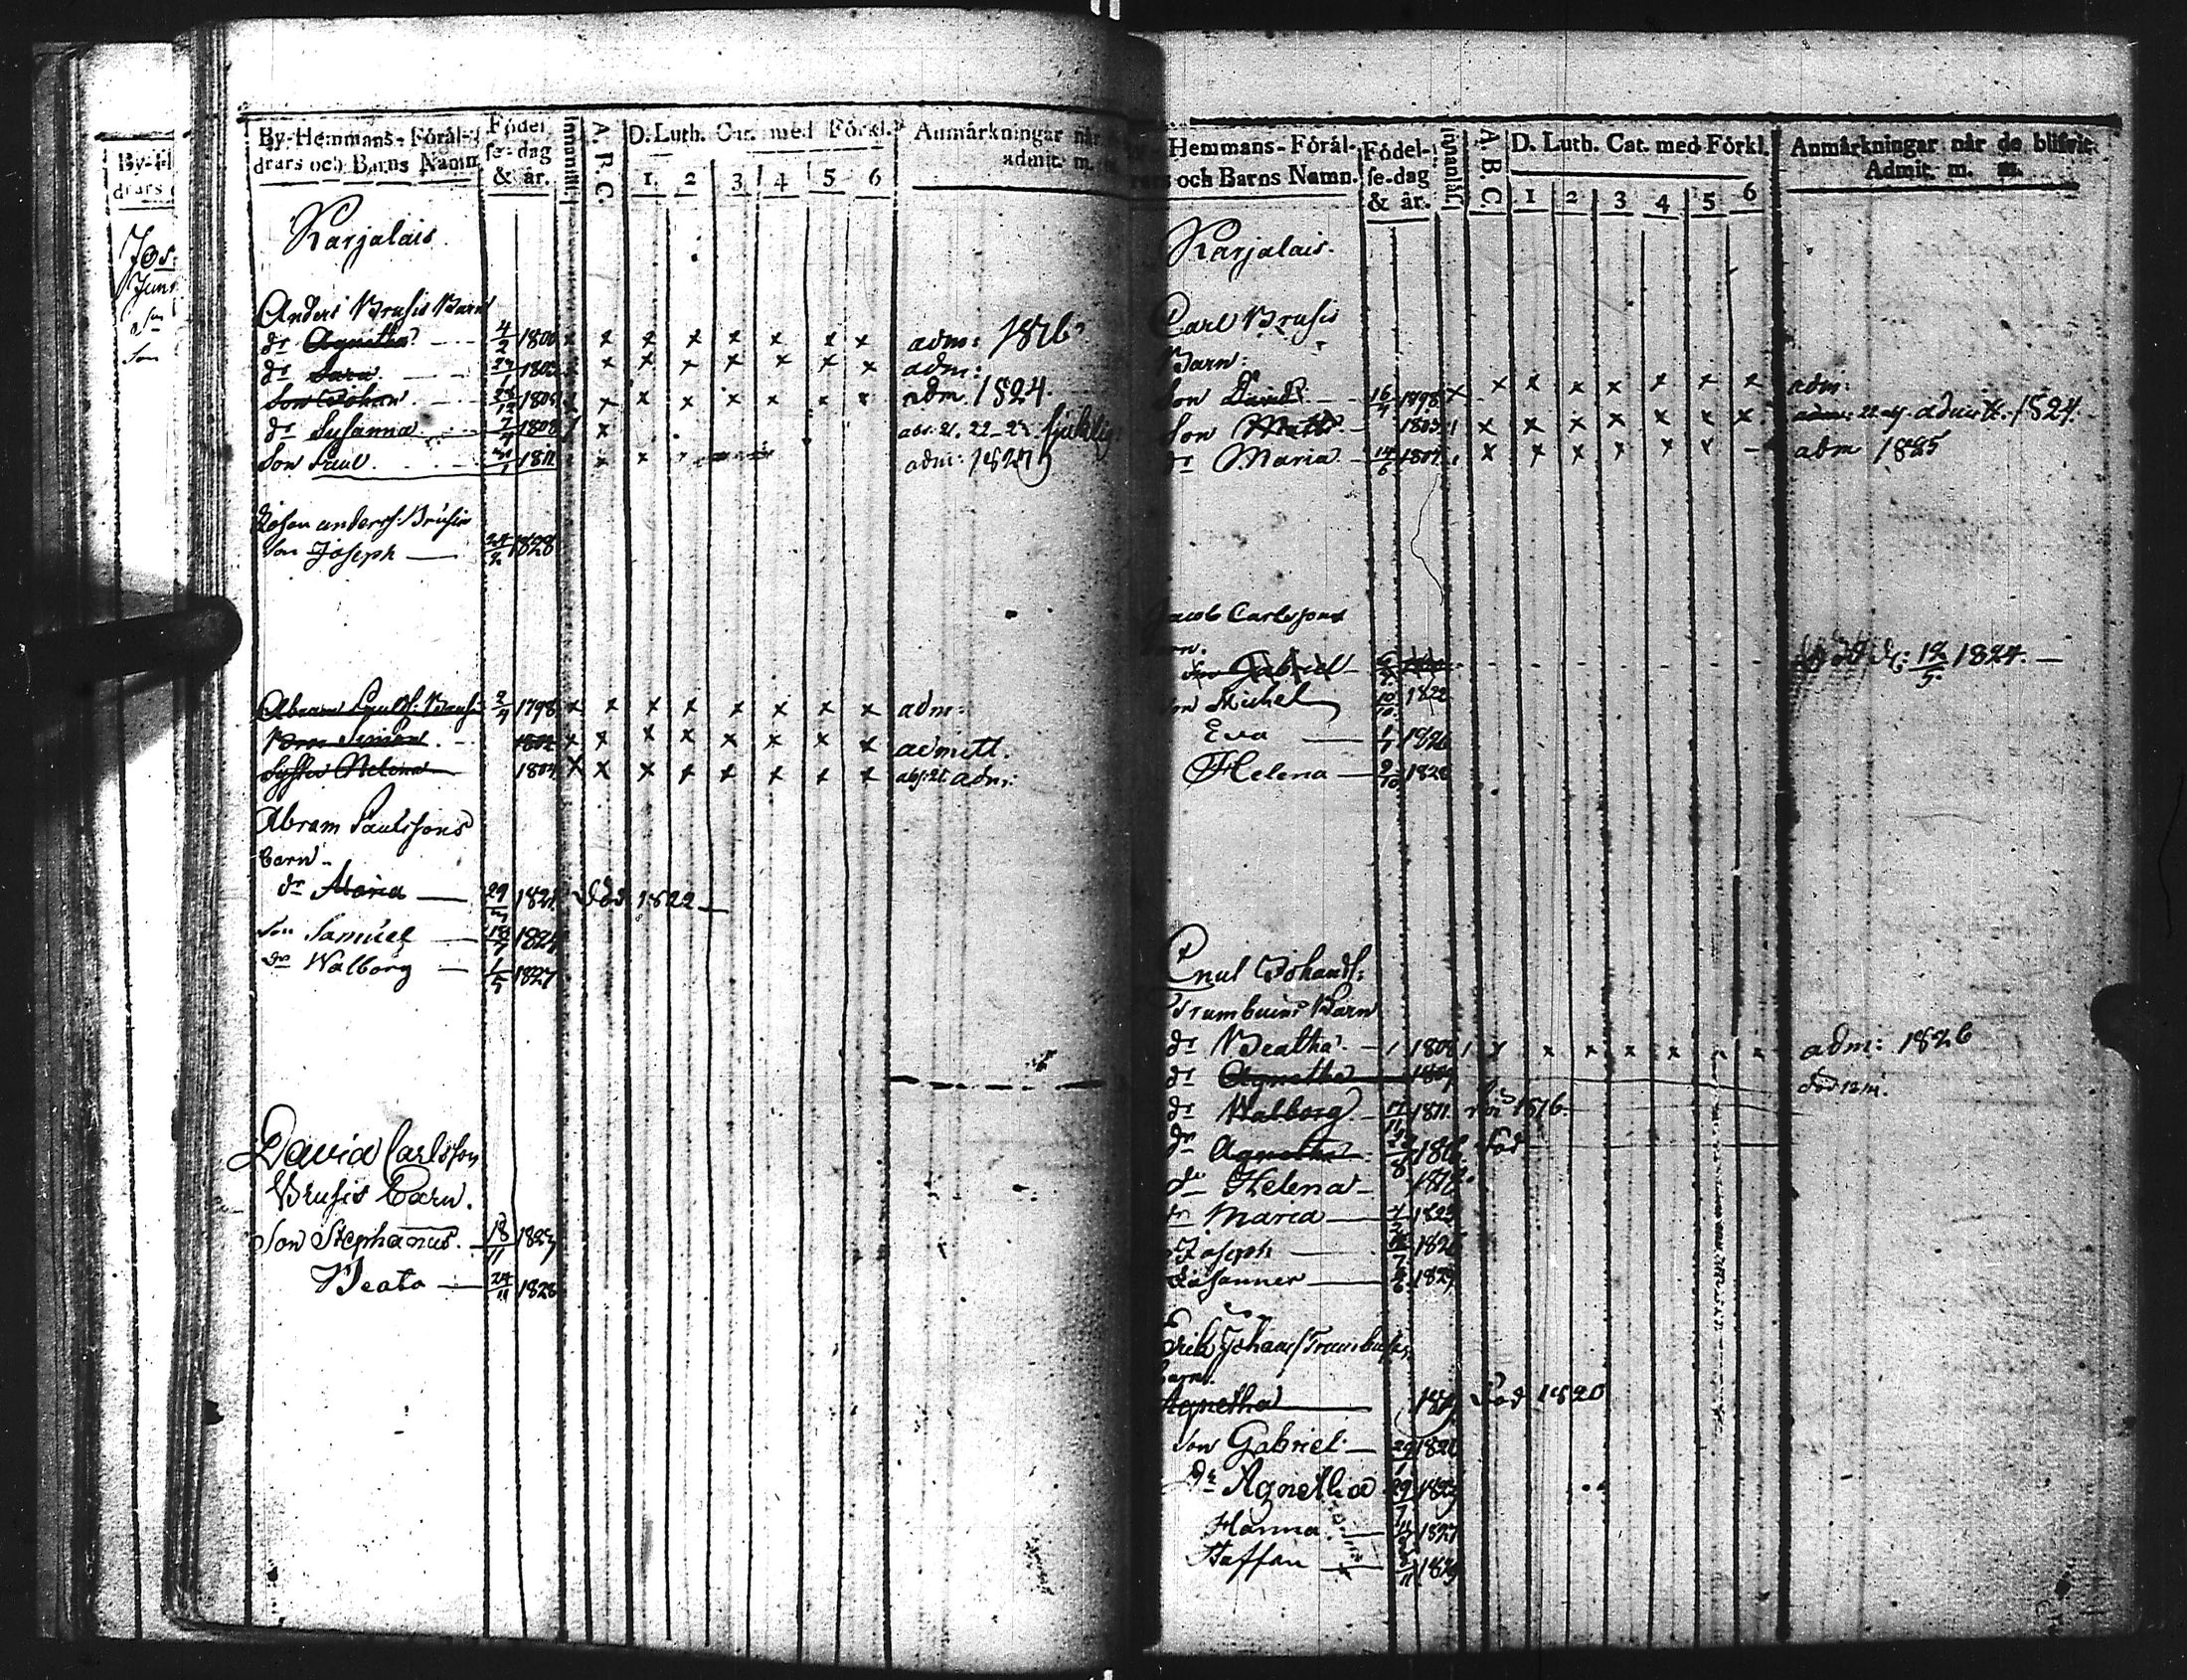 By-H
drars
Jos
By-Hemmans-Förål-
drars och Barns Namn
Födel-
se-dag
& år.
Innanläs.
A. B. C.
D. Luth. Cat. med Förkl.
1. 2 3 4 5 6
Anmärkningar när
admit. m. m.
Karjalais.
Anders Brusis Barn
dr Agnetha 4/2 1800 x x x x x x x x adm: 1816
dr Sara 1802 x x x x x x x adm:
Son Johan 1805 x x x x x x x adm. 1824.
dr Susanna 1808 x abs. 21. 22-23. sjuklig
Son Paul 1811 x x adm: 1827
Johan anderss: Brusis
Son Joseph 24/2 1828
Abram Paulss: Brusis 2/4 1798 x x x x x x x x adm:
Bror Simon 1802 x x x x x x x x admitt.
Syster Helena 1804 x x x x x x x x abs: 21 adm:
Abram Paulssons
barn
dr Maria 1821 död 1822
Son Samuel 1824
dr Walborg 1/5 1827
David Carlsson
Brusis Barn.
Son Stephanus. 18/11 1827
Beata 24/11 1828
Hemmans-Förål-
och Barns Namn.
Födel-
se-dag
& år.
Innanläs.
A. B. C.
D. Luth. Cat. med Förkl.
1 2 3 4 5 6
Anmärkningar när de blifvit
Admit. m. m.
Karjalais.
Carl Brusis
Barn:
Son David 16/4 1798 x x x x x x x x adm:
Son Matts 1803 x x x x x x x admitt. 1824.
dr Maria 14/6 1807 x x x x x x adm 1825
Jacob Carlssons
Barn.
Son Gabriel död d: 18/5 1824.
Son Michel 10/10 1822
Eva 1/1 1826
Helena 9/10 1828
Cnut Johanss:
Trumbuins Barn
dr Beatha 1808 x x x x x x x adm: 1826
dr Agnetha 1809
dr Walborg 1811 död 1816
dr Agnetha 1816 död
dr Helena 1818
dr Maria 1823
Joseph
Johannes
Erik Johanss Trumbuins
barn.
Agnetha 1819 död 1820
Son Gabriel
dr Agnetha
Hanna 1827
Staffan 1829